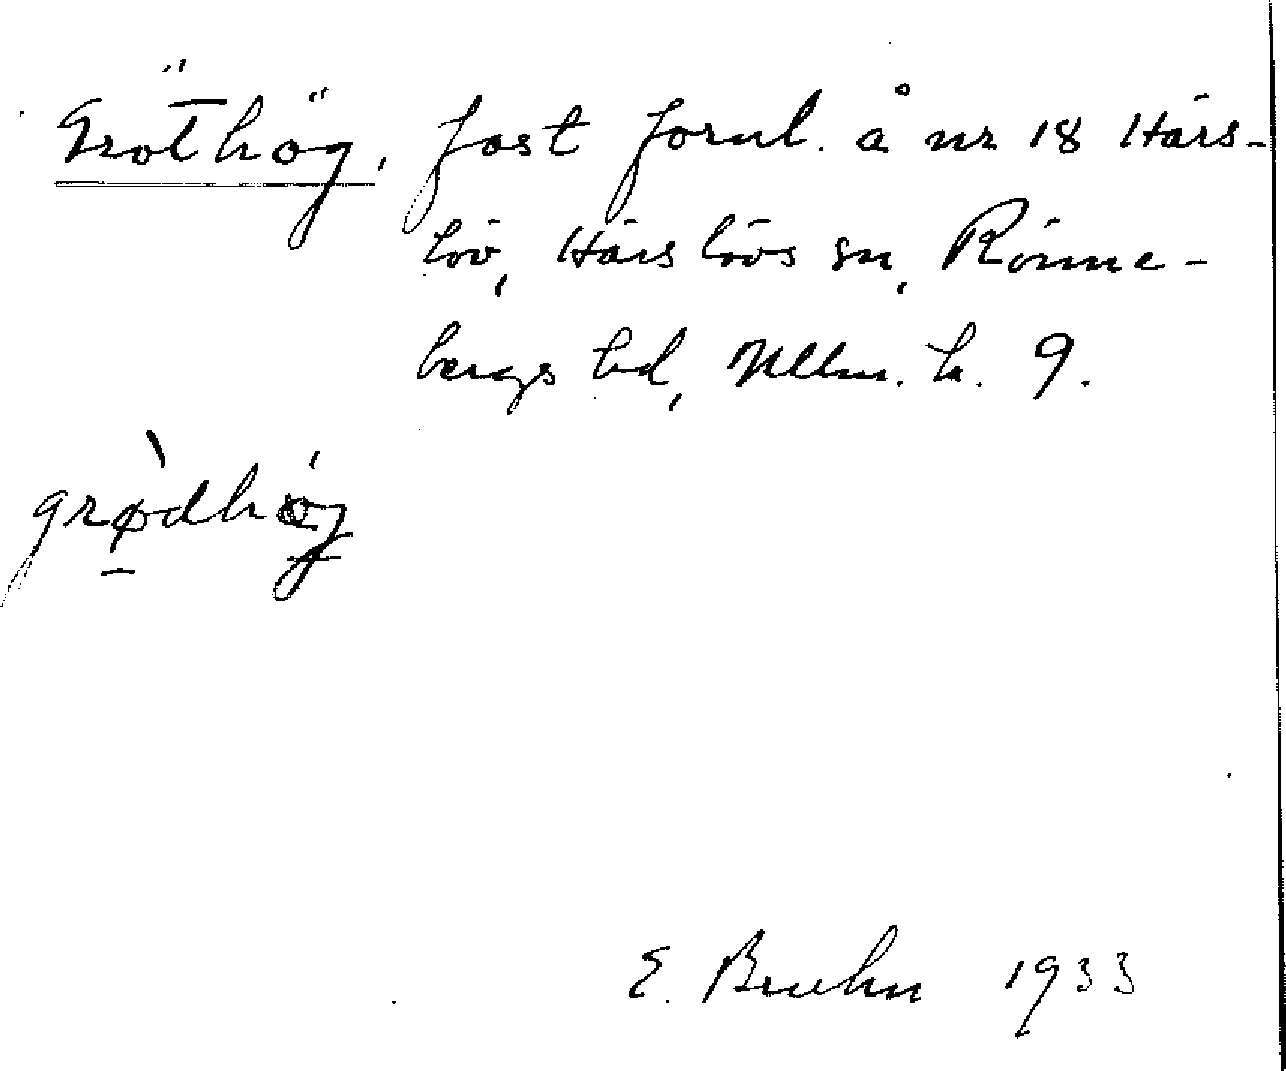 Gröthög, fast fornl. å nr 18 Härs-
löv, Härslövs sn, Rönne-
bergs hd, Mllm. l. 9.
grø̀dhǿg
E. Bruhn 1933